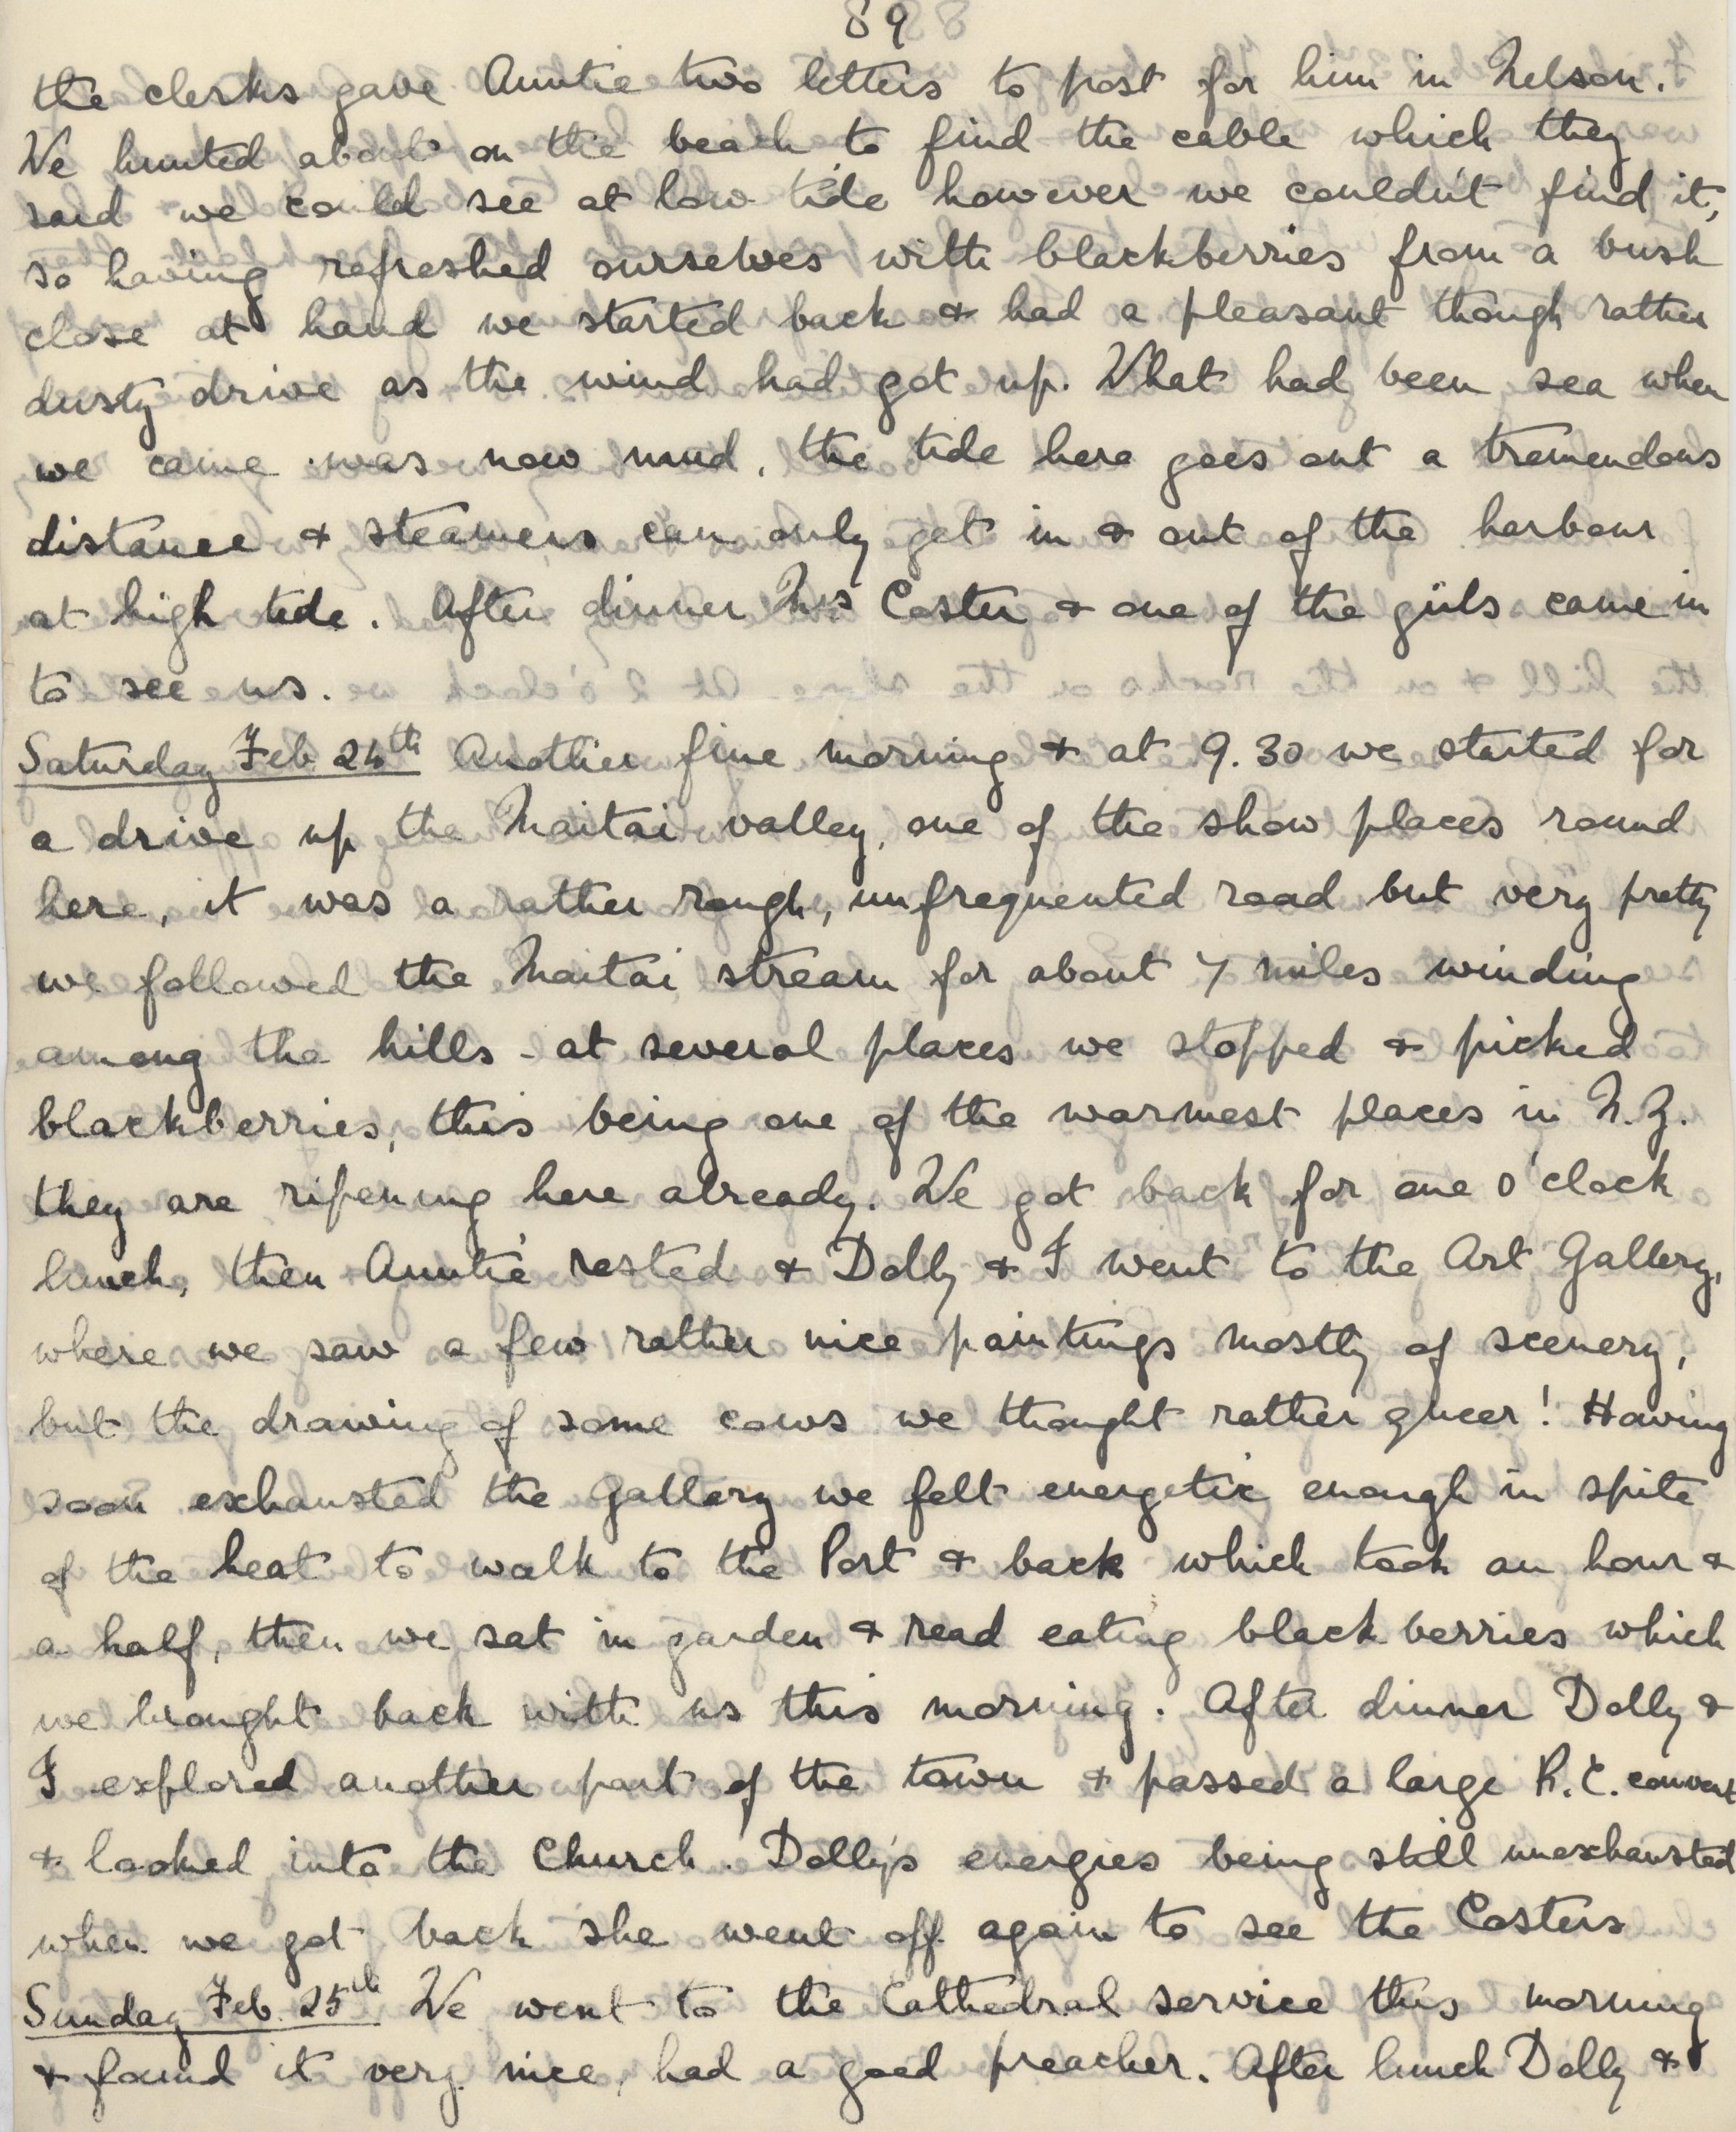 89
the clerks gave Auntie two letters to post for him in Nelson.
We hunted about on the beach to find the cable which they
said we could see at low tide however we couldn't find it,
so having refreshed ourselves with blackberries from a bush
close at hand we started back & had a pleasant though rather
dusty drive as the wind had got up. What had been sea when
we came was now mud, the tide here goes out a tremendous
distance & steamers can only get in & out of the harbour
at high tide. After dinner Mrs Coster & one of the girls came in
to see us.
Saturday Feb 24th Another fine morning & at 9.30 we started for
a drive up the Maitai valley, one of the show places round
here, it was a rather rough, unfrequented road but very pretty
we followed the Maitai stream for about 7 miles winding
among the hills - at several places we stopped & picked
blackberries, this being one of the warmest places in N.Z.
they are ripening here already. We got back for one o'clock
lunch, then Auntie rested & Dolly & I went to the Art Gallery,
where we saw a few rather nice paintings mostly of scenery,
but the drawing of some cows we thought rather queer! Having
soon exhausted the Gallery we felt energetic enough in spite
of the heat to walk to the Port & back which took an hour &
a half, then we sat in garden & read eating black berries which
we brought back with us this morning. After dinner Dolly &
I explored another part of the town & passed a large R.C. convent
& looked into the Church. Dolly's energies being still unexhausted
when we got back she went off again to see the Costers
Sunday Feb 25th We went to the Cathedral service this morning
& found it very nice, had a good preacher. After lunch Dolly &